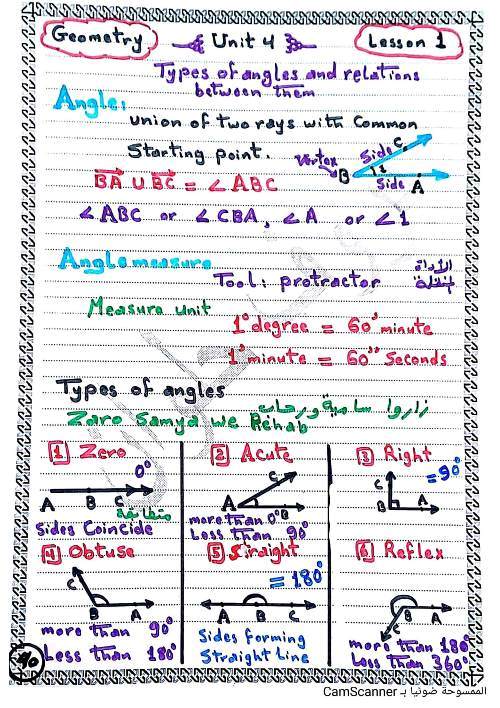 Geometry
Unit 4
Lesson 1
Types of angles and relations
between them
Angle:
union of two rays with Common
Starting point.
Vertex
B
Side
C
1
Side
A
BA ∪ BC = ∠ ABC
∠ ABC or ∠ CBA, ∠ A or ∠ 1
Angle measure
Tool: protractor
الأداة
المنقلة
Measure unit
1° degree = 60' minute
1' minute = 60'' Seconds
Types of angles
زاروا سامية ورحاب
Zaro Samya we Rehab
1 Zero
0°
A B C
متطابقة
Sides Coincide
2 Acute
C
A
B
more than 0°
Less than 90°
3 Right
= 90°
C
B
A
4 Obtuse
C
B A
more than 90°
Less than 180°
5 Straight
= 180°
A B C
Sides forming
Straight line
6 Reflex
B A
C
more than 180°
Less than 360°
40
الممسوحة ضوئيا بـ CamScanner